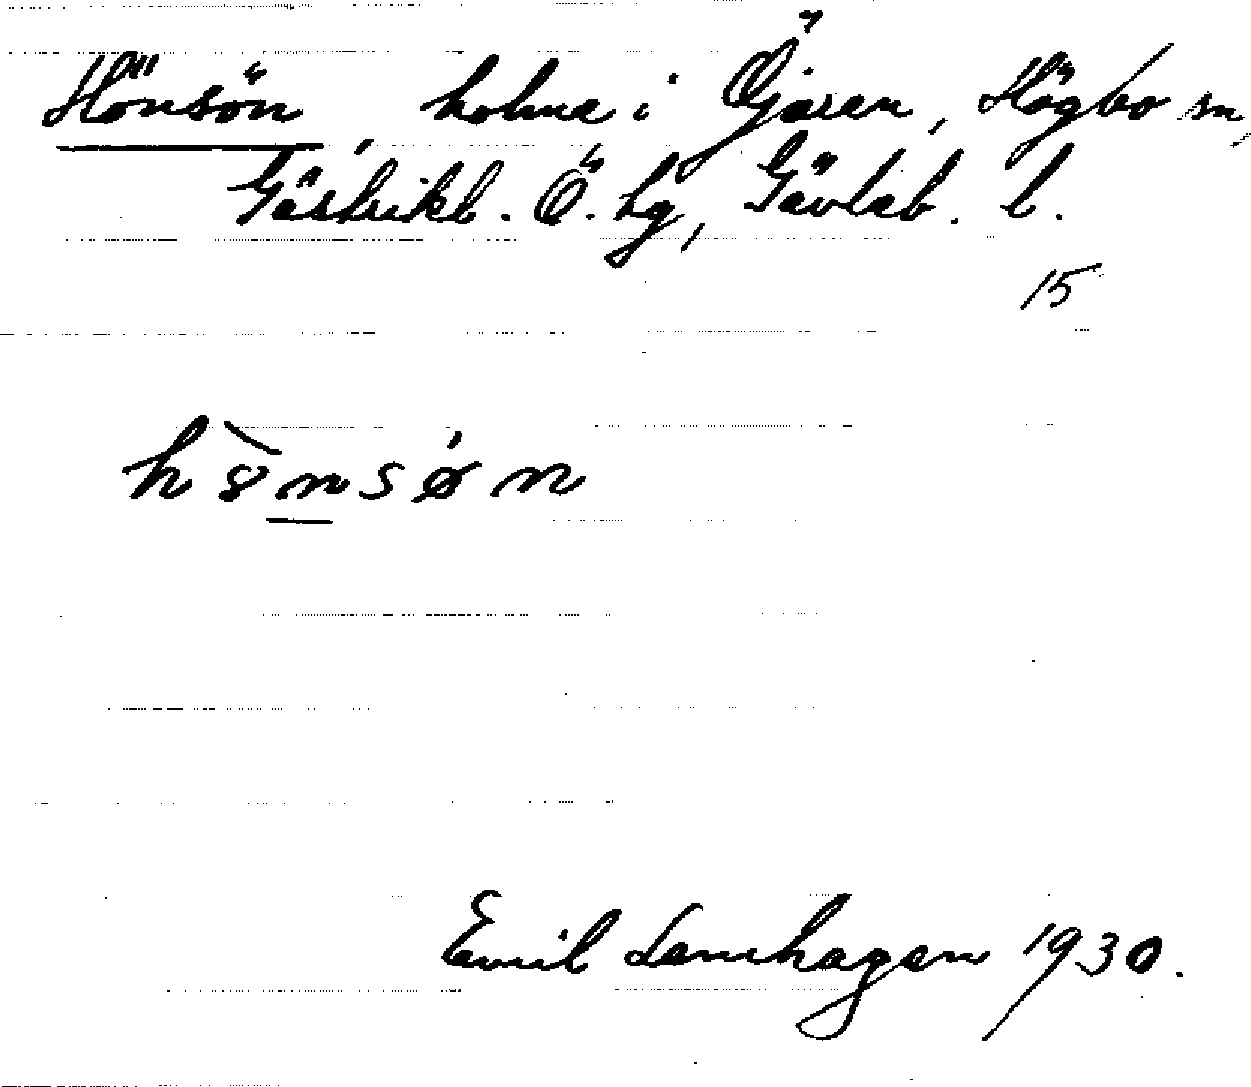 Hönsön, holme i Öjaren, Högbo sn,
Gästrikl. Ö. hg, Gävleb. l.
15
h8̀nsøn
Emil Lamhagen 1930.